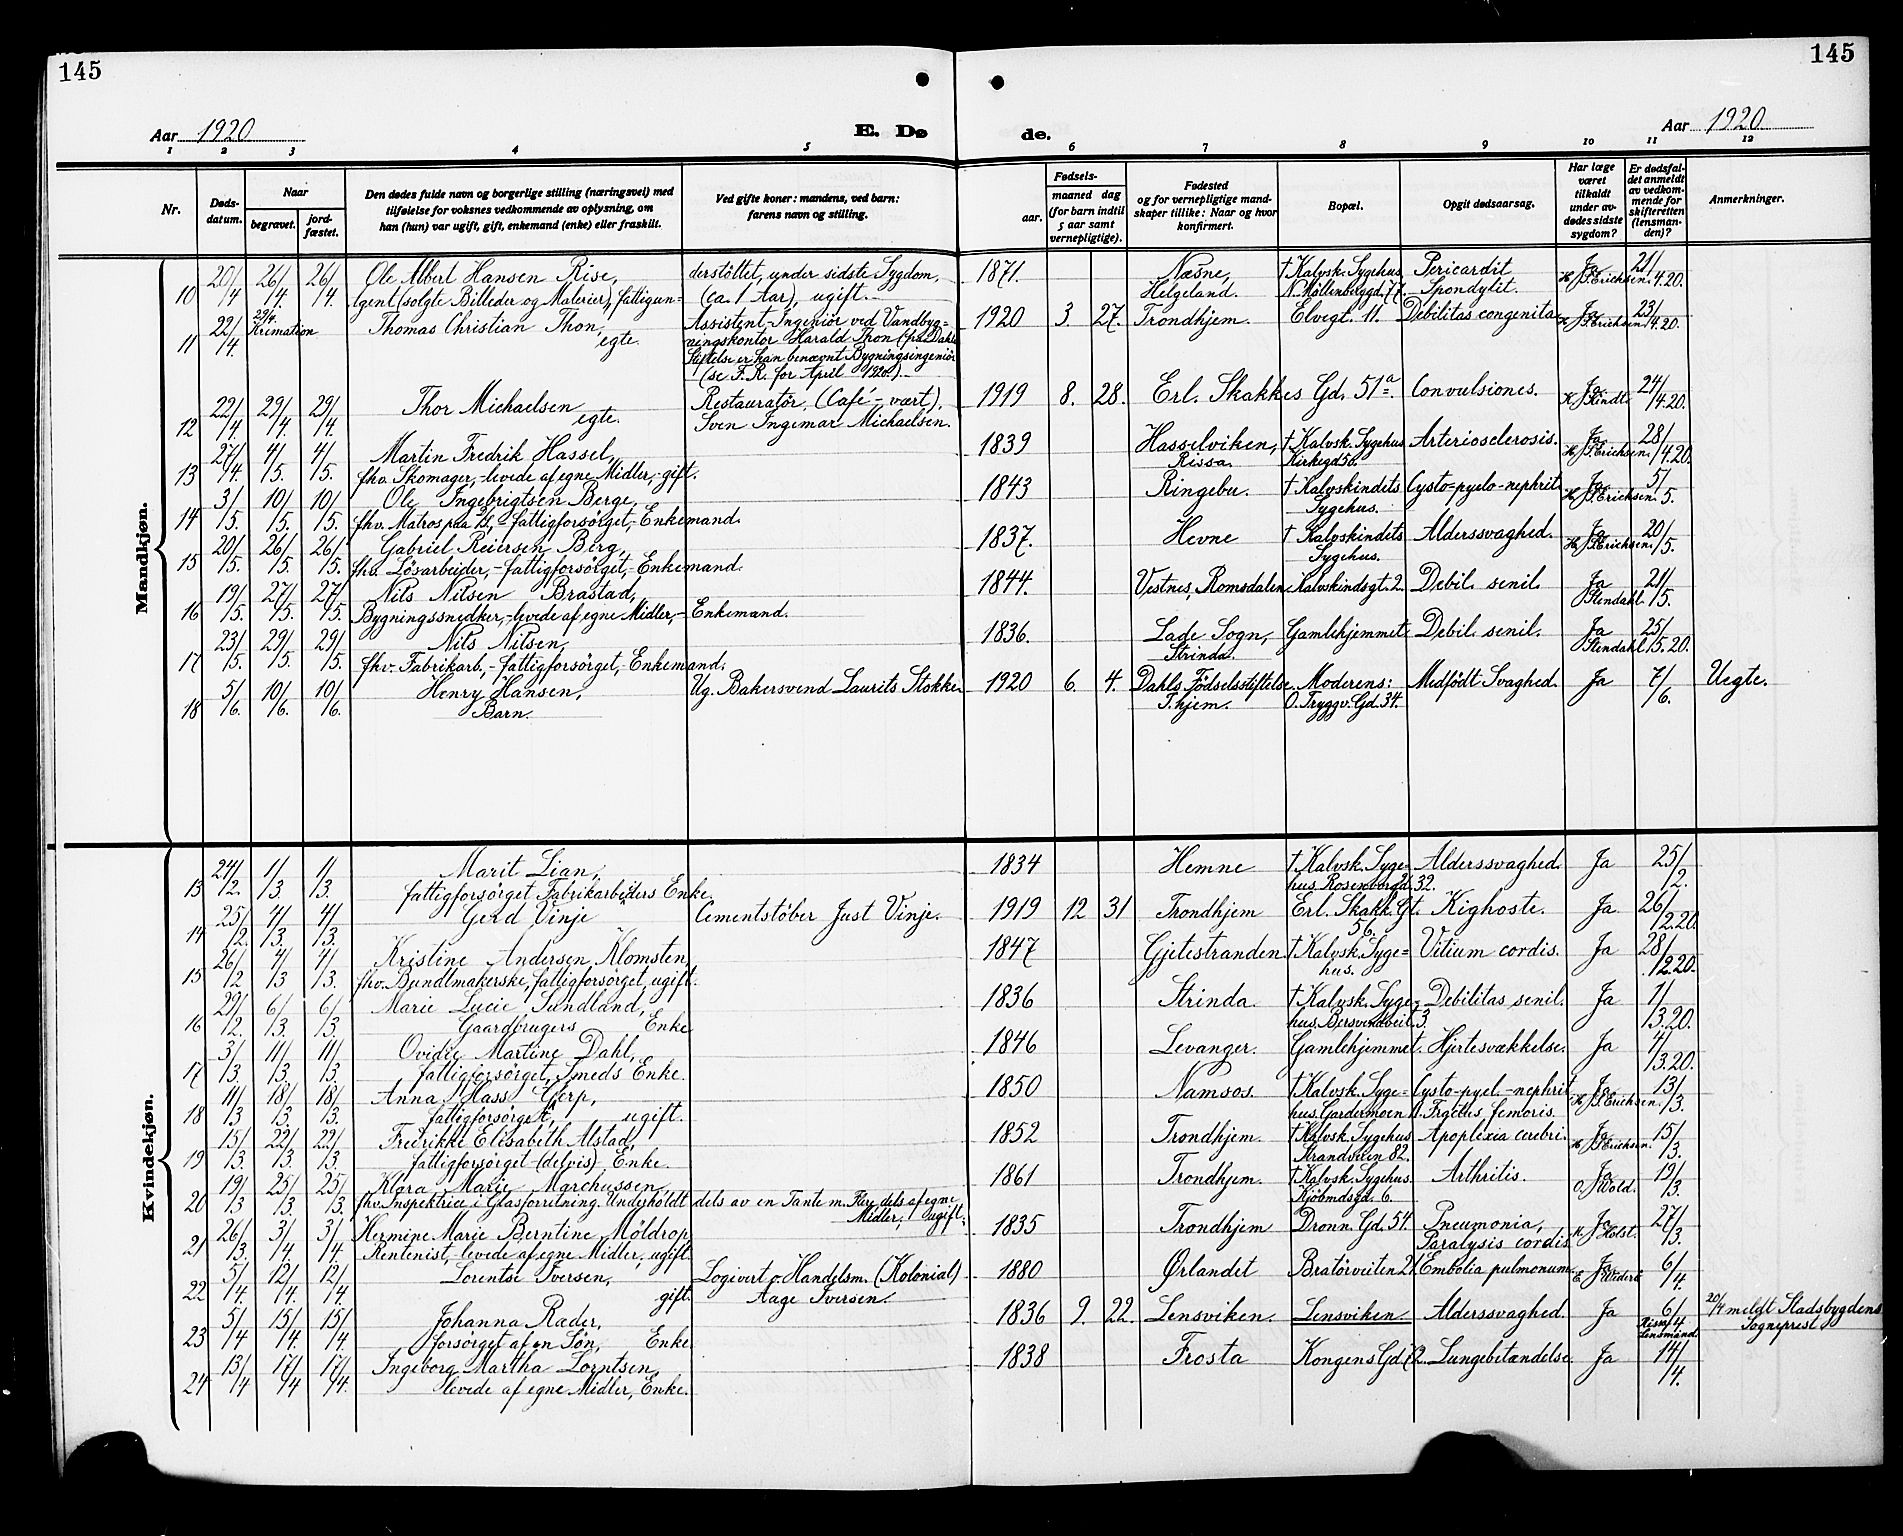 145
145
Aar 1920
E. Dø
de.
Aar 1920
1 2 3 4 5 6 7 8 9 10 11 12
Nr.
Døds-datum.
Naar
begravet.
jord-fæstet.
Den dødes fulde navn og borgerlige stilling (næringsvei) med
tilføielse for voksnes vedkommende av oplysning, om
han (hun) var ugift, gift, enkemand (enke) eller fraskilt.
Ved gifte koner: mandens, ved barn:
farens navn og stilling.
Fødsels-
aar.
maaned dag
(for barn indtil
5 aar samt
vernepligtige).
Fødested
og for vernepligtige mand-
skaper tillike: Naar og hvor
konfirmert.
Bopæl.
Opgit dødsaarsag.
Har læge
været
tilkaldt
under av-
dødes sidste
sygdom?
Er dødsfal-
det anmeldt
av vedkom-
mende for
skifteretten
(lensman-
den)?
Anmerkninger.
Mandkjøn.
10 20/4 26/4. 26/4. Ole Albert Hansen Rise, derstöttet, under sidste Sygdom, 1871. Næsne, † Kalvsk. Sygehus Pericardit Ja 21/4.20.
Agent (solgte Billeder og Malerier), fattigun- (ca. 1 Aar), ugift. Helgeland. N. Möllenberggd. 77. Spondylit. H. J. S. Erichsen.
11 22/4. 29/4. Kremation Thomas Christian Thon, Assistent-Ingeniör ved Vandbyg- 1920 3. 27. Trondhjem. Elvegt. 11. Debilitas congenita Ja 23/4.20.
egte. ningskontor Harald Thon (fra Dahls H. J. S. Erichsen
Stiftelse er han benævnt Bygningsingeniör
(se F. R. for April 1920).
12 22/4. 29/4. 29/4. Thor Michaelsen Restauratør, (Café-vært). 1919 8. 28. Erl. Skakkes Gd. 51a. Convulsiones. Ja 24/4.20.
egte. Sven Ingemar Michaelsen. K. J. Kindt.
13 27/4. 4/5. 4/5. Martin Fredrik Hassel, 1839 Hasselviken, † Kalvsk. Sygehus Arteriosclerosis. Ja 28/4.20.
fhv. Skomager, - levede af egne Midler, - gift. Rissa. Kirkegd 56. H. J. S. Erichsen.
14 3/5. 10/5. 10/5. Ole Ingebrigtsen Berge, 1843 Ringebu. † Kalvskindets Cysto-pyelo-nephrit Ja 5/5.
fhv. Matros paa D/S, - fattigforsörget, - Enkemand. Sygehus. H. J. S. Erichsen.
15 20/5. 26/5. 26/5. Gabriel Reiersen Berg, 1837. Hevne † Kalvskindets Alderssvaghed. Ja 20/5.
fhv. Lösarbeider, - fattigforsörget, - Enkemand. Sygehus. H. J. S. Erichsen.
16 19/5. 27/5. 27/5. Nils Nilsen Brastad, 1844. Vestnes, Romsdalen Kalvskindsgt. 2. Debil. senil. Ja 21/5.
Bygningssnedker, - levede af egne Midler, - Enkemand. Stendahl.
17 23/5. 29/5. 29/5. Nils Nilsen, 1836. Lade Sogn, Gamlehjemmet Debil. senil. Ja 25/5.20.
fhv. Fabrikarb., - fattigforsörget, - Enkemand. Strinda. Stendahl
18 5/6. 10/6. 10/6. Henry Hansen, Ug. Bakersvend Laurits Stokke 1920 6. 4. Dahls Födselsstiftelse Moderens: Medfödt Svaghed. Ja 7/6. Uegte.
Barn. T.hjem. O. Tryggv. Gd. 34.
Kvindekjøn.
13 24/2. 1/3. 1/3. Marit Lian, 1834 Hemne † Kalvsk. Syge- Alderssvaghed. Ja 25/2.
fattigforsörget Fabrikarbeiders Enke. hus. Rosenborgd. 32.
14 25/2. 4/3. 4/3. Gerd Vinje Cementstöber Just Vinje. 1919 12 31 Trondhjem Erl. Skakk. Gt. Kighoste. Ja 26/2.20.
56.
15 26/2 4/3 4/3. Kristine Andersen Klomsten, 1847 Gjetestranden. † Kalvsk. Syge- Vitium cordis. Ja 28/2.20.
fhv. Bundtmakerske, fattigforsörget, ugift. hus.
16 29/2. 6/3. 6/3. Marie Lucie Sundland, 1836 Strinda. † Kalvsk. Syge- Debilitas senil. Ja 1/3.20.
Gaardbrugers Enke hus. Bersvendveit. 3.
17 3/3. 11/3. 11/3. Ovidie Martine Dahl, 1846 Levanger. Gamlehjemmet. Hjertesvækkelse. Ja 4/3.20.
fattigforsörget, Smeds Enke.
18 11/3 18/3. 18/3. Anna Hass Gerp, 1850 Namsos. † Kalvsk. Syge- Cysto-pyel.-nephrit Ja 13/3.
fattigforsörget, ugift. hus. Gardermoen 11. Fractus femoris. H. J. S. Erichsen.
19 15/3. 22/3. 22/3. Fredrikke Elisabeth Alstad, 1852 Trondhjem. † Kalvsk. Sygehus Apoplexia cerebri. Ja 15/3.
fattigforsörget (delvis), Enke. Strandveien 82. H. J. S. Erichsen.
20 19/3 25/3. 25/3. Klara Marie Marchussen 1861 Trondhjem. † Kalvsk. Sygehus. Arthritis. Ja 19/3.
fhv. Inspektrice i Glasforretning. Underhöldt dels av en Tante m. Fler, dels af egne Kjöbmdsgd. 6. O. J. Wold.
Midler, ugift.
21 26/3. 3/4. 3/4 Hermine Marie Berntine Möldrop, 1835 Trondhjem Dronn. Gd. 54. Pneumonia, Ja 27/3.
Rentenist, levede af egne Midler, ugift. Paralysis cordis. M. J. Holst.
22 5/4 12/4. 12/4. Lorentse Iversen, Logivert o. Handelsm. (Kolonial) 1880 Ørlandet Bratörveiten 2. Embolia pulmonum. Ja 6/4.
gift. Aage Iversen.
23 5/4 15/4. 15/4. Johanna Ræder, 1836 9. 22. Lensviken. Lensviken Alderssvaghed. Ja 6/4 20/4 meldt Stadsbygdens
forsörget af en Sön, Enke. Rissa Lensmand. Sogneprest
24 13/4 17/4 17/4. Ingeborg Martha Lorntsen, 1838 Frosta Kongens Gd 72. Lungebetændelse. Ja 14/4.
levede af egne Midler, Enke.